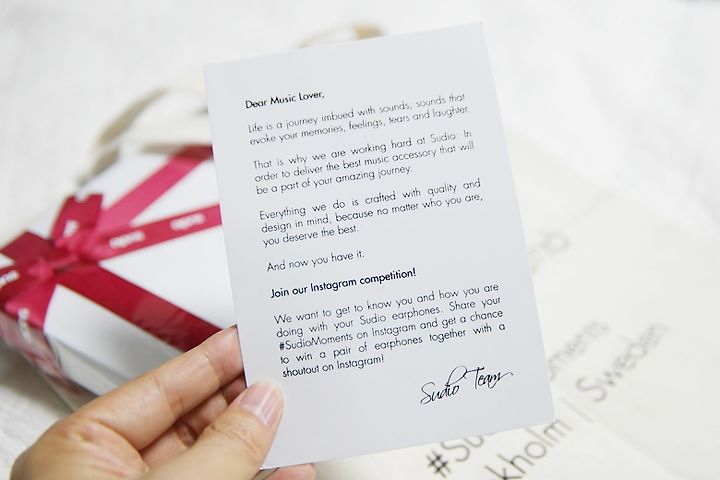 Dear Music Lover,
Life is a journey imbued with sounds; sounds that
evoke your memories, feelings, tears and laughter.
That is why we are working hard at Sudio: In
order to deliver the best music accessory that will
be a part of your amazing journey.
Everything we do is crafted with quality and
design in mind, because no matter who you are,
you deserve the best.
And now you have it.
Join our Instagram competition!
We want to get to know you and how you are
doing with your Sudio earphones. Share your
#SudioMoments on Instagram and get a chance
to win a pair of earphones together with a
shoutout on Instagram!
Sudio Team
Sweden